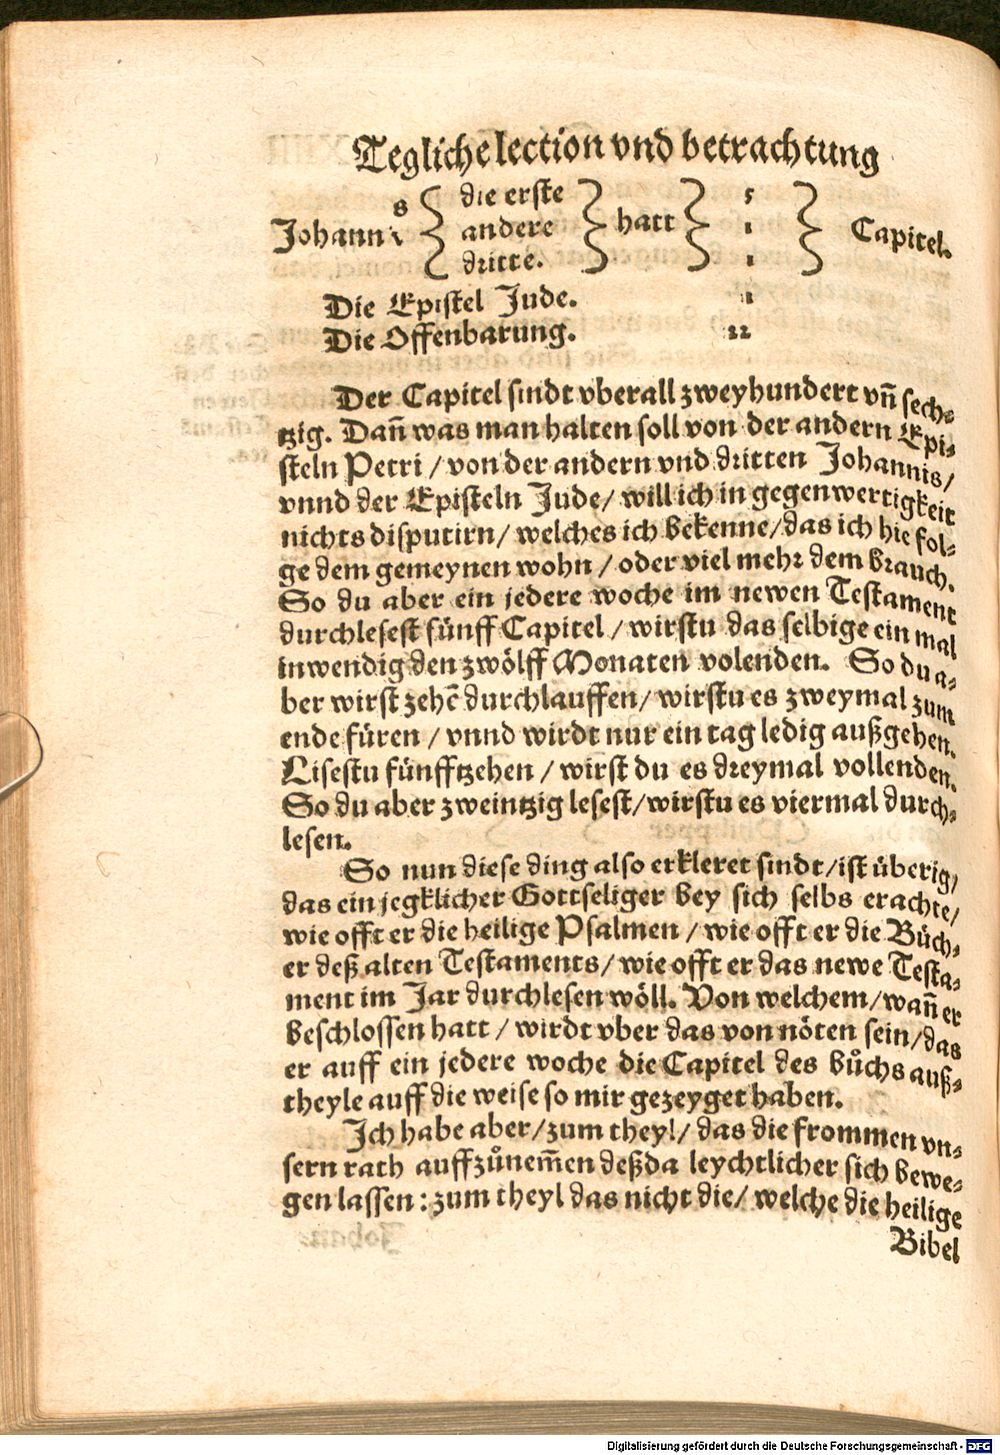 Tegliche lection vnd betrachtung
die erste 5
Johannis andere hatt 1 Capitel.
dritte. 1
Die Epistel Jude. 1
Die Offenbarung. 22
Der Capitel sindt vberall zweyhundert vn̄ sech⸗
tzig. Dan̄ was man halten soll von der andern Epi⸗
steln Petri / von der andern vnd dritten Johannis /
vnnd der Episteln Jude / will ich in gegenwertigkeit
nichts disputirn / welches ich bekenne / das ich hie fol⸗
ge dem gemeynen wohn / oder viel mehr dem brauch.
So du aber ein jedere woche im newen Testament
durchlesest fünff Capitel / wirstu das selbige ein mal
inwendig den zwölff Monaten volenden. So du a⸗
ber wirst zehē durchlauffen / wirstu es zweymal zum
ende füren / vnnd wirdt nur ein tag ledig außgehen.
Lisestu fünfftzehen / wirst du es dreymal vollenden.
So du aber zweintzig lesest / wirstu es viermal durch⸗
lesen.
So nun diese ding also erkleret sindt / ist überig /
das ein jegklicher Gottseliger bey sich selbs erachte /
wie offt er die heilige Psalmen / wie offt er die Büch⸗
er deß alten Testaments / wie offt er das newe Testa⸗
ment im Jar durchlesen wöll. Von welchem / wan̄ er
beschlossen hatt / wirdt vber das von nöten sein / das
er auff ein jedere woche die Capitel des bůchs auß⸗
theyle auff die weise so mir gezeyget haben.
Ich habe aber / zum theyl / das die frommen vn⸗
sern rath auffzůnem̄en deßda leychtlicher sich bewe⸗
gen lassen : zum theyl das nicht die / welche die heilige
Bibel
Digitalisierung gefördert durch die Deutsche Forschungsgemeinschaft - DFG